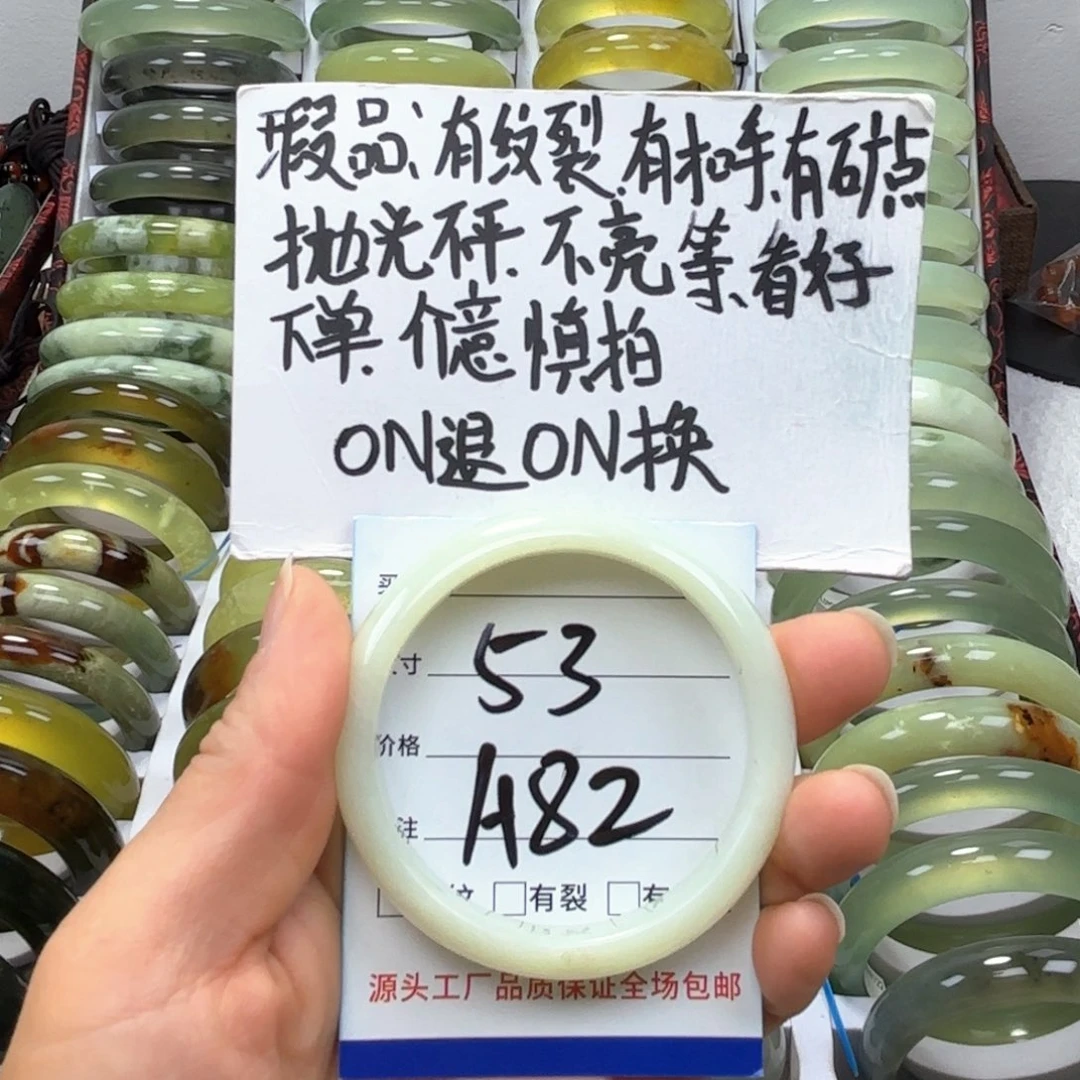 瑕品、有纹裂.有扣手.有矿点
抛光秤.不亮等、看好
下单.介意慎拍
ON退 ON换
寸
53
价格
注
A82
纹 □有裂 □有
源头工厂品质保证全场包邮